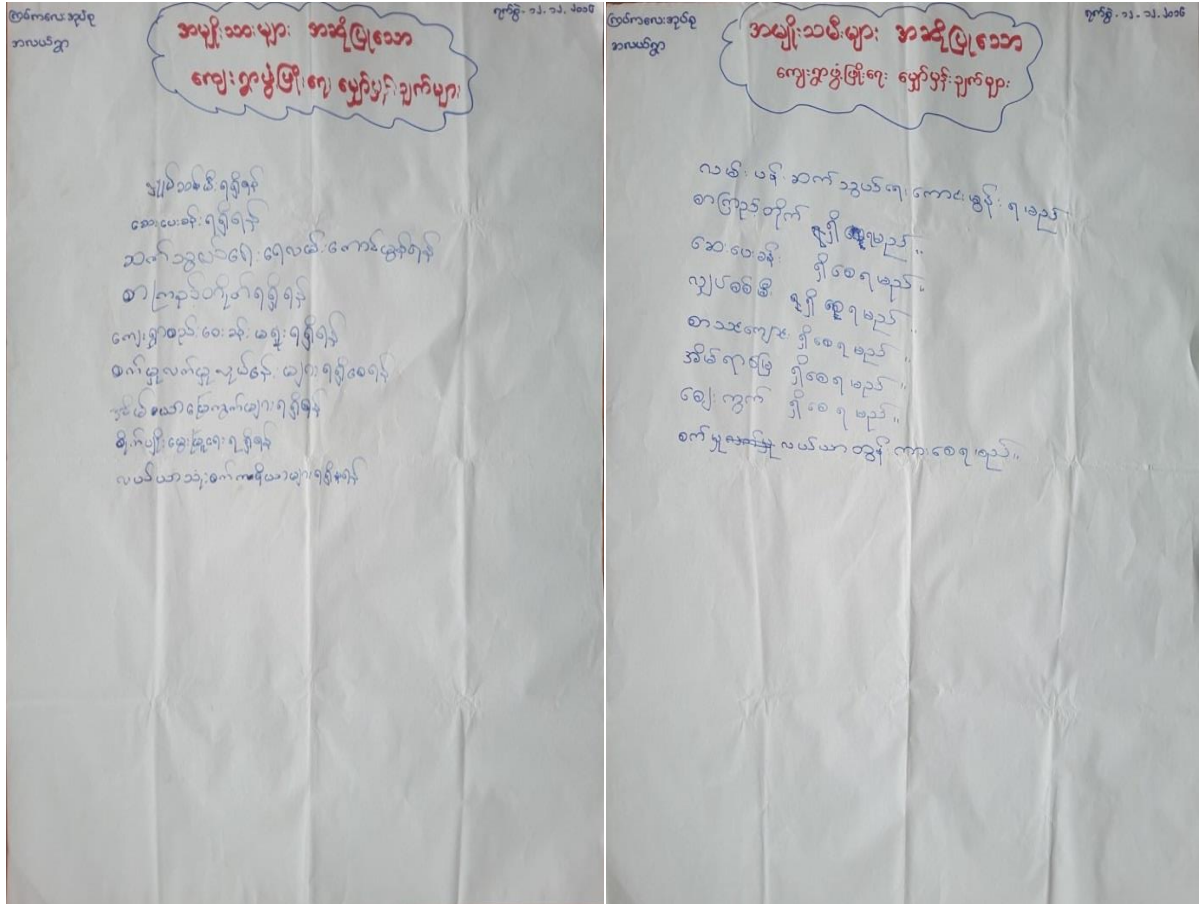 ကြမ်ကလေးအုပ်စု
အလယ်ရွာ
ရက်စွဲ - ၁၂.၁၂.၂၀၁၆
အမျိုးသားများ အဆိုပြုသော
ကျေးရွာဖွံ့ဖြိုးရေး မျှော်မှန်းချက်များ
လျှပ်စစ်မီးရရှိရန်
ဆေးပေးခန်းရရှိရန်
ဆက်သွယ်ရေးရေလမ်းကောင်းမွန်ရန်
စာကြည့်တိုက်ရရှိရန်
ကျေးရွာစည်းဝေးခန်းမရုံးရရှိရန်
စက်မှုလက်မှုလုပ်ငန်းများရရှိစေရန်
အိမ်ယာမြေကွက်များရရှိရန်
စိုက်ပျိုးမွေးမြူရေးရရှိရန်
လယ်ယာသုံးစက်ကိရိယာများရရှိရန်
ကြမ်ကလေးအုပ်စု
အလယ်ရွာ
ရက်စွဲ - ၁၂.၁၂.၂၀၁၆
အမျိုးသမီးများ အဆိုပြုသော
ကျေးရွာဖွံ့ဖြိုးရေး မျှော်မှန်းချက်များ
လမ်းပန်းဆက်သွယ်ရေးကောင်းမွန်းရမည်
စာကြည့်တိုက် ရှိစေရမည်။
ဆေးပေးခန်း ရှိစေရမည်။
လျှပ်စစ်မီး ရှိစေရမည်။
စာသင်ကျောင်း ရှိစေရမည်။
အိမ်ရာမြေ ရှိစေရမည်။
ဈေးကွက် ရှိစေရမည်။
စက်မှု လယ်ယာထွန်ကားစေရမည်။